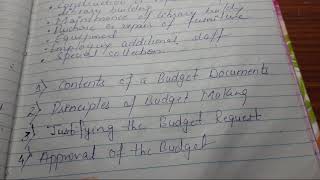 library building
• Maintenance of library buildg
• Purchase & repair of furniture
• Equipment
• Employing additional staff
• Special collection.
1) Contents of a Budget Documents
2) Principles of Budget Making
3) Justifying the Budget Request
4) Approval of the Budget